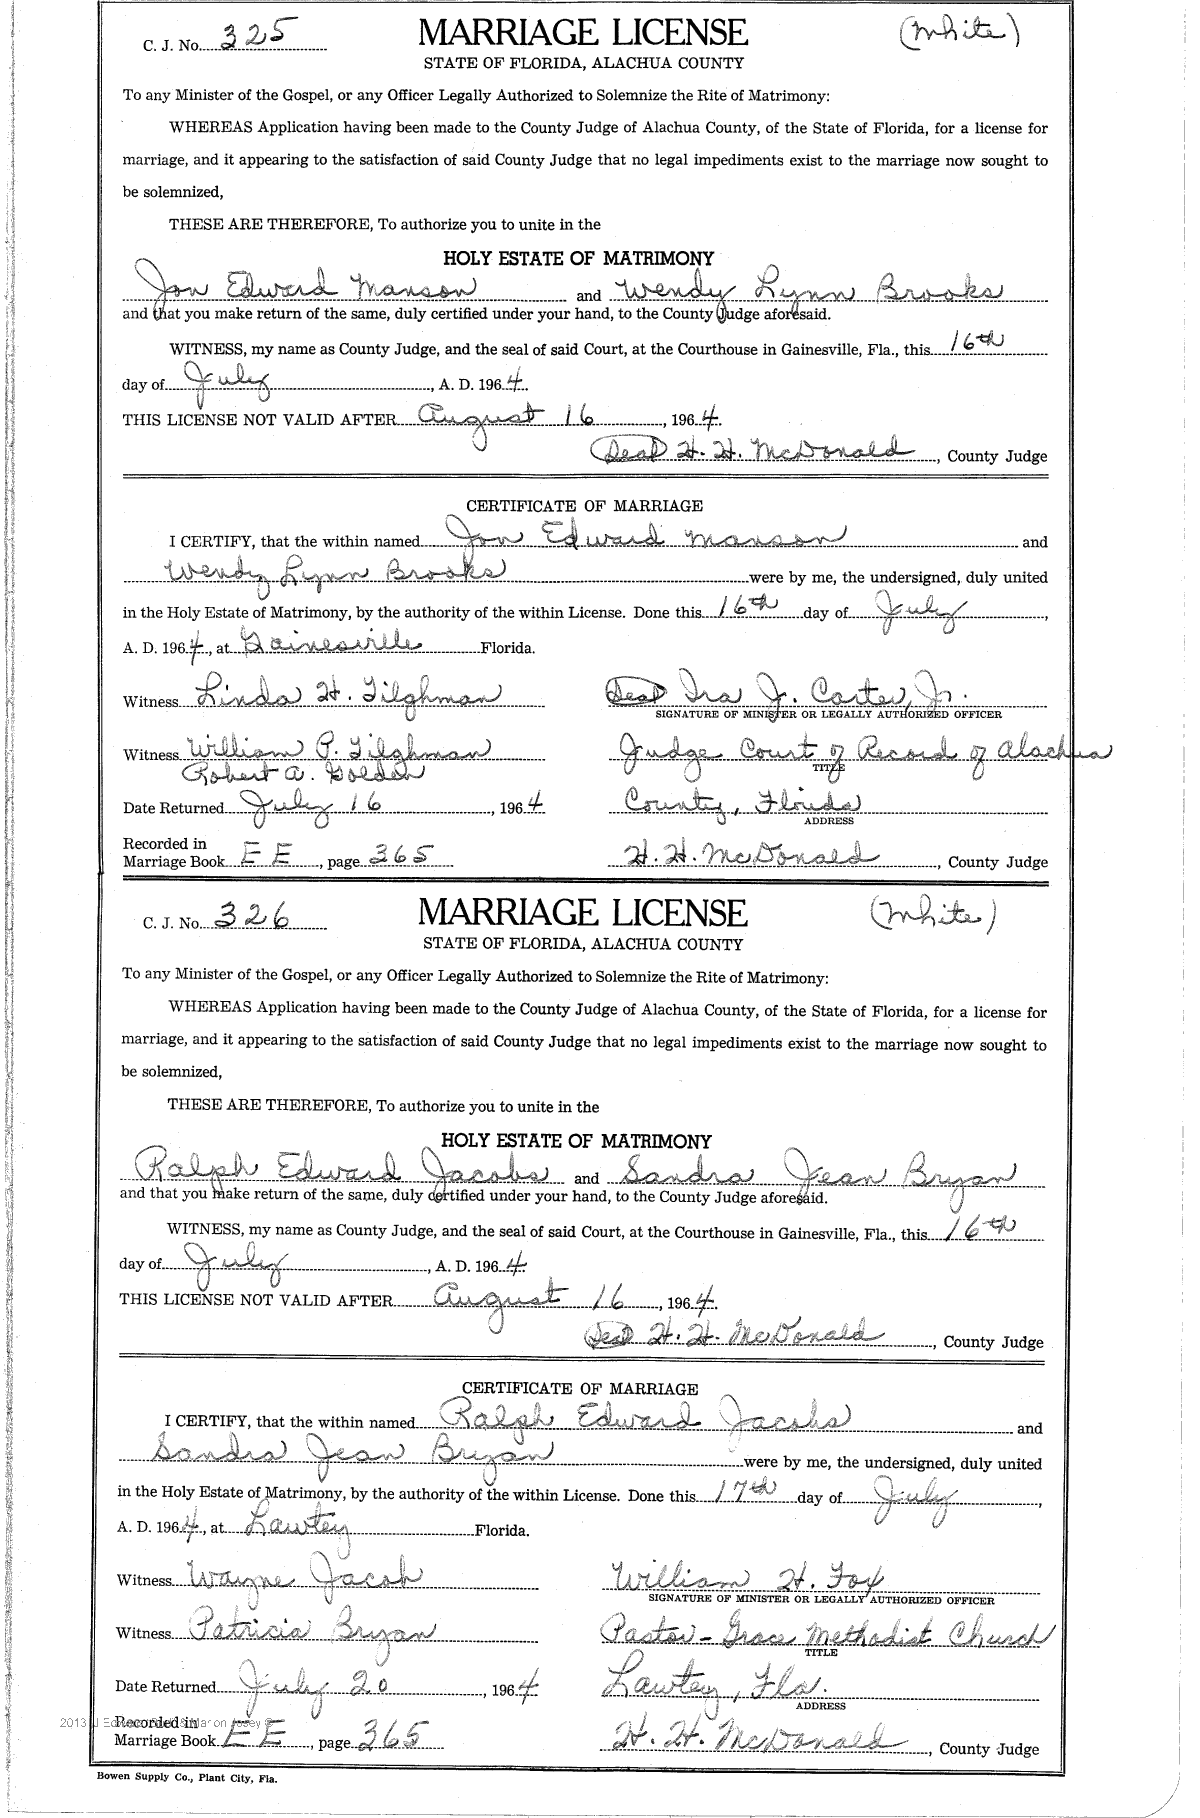 C. J. No. 325 MARRIAGE LICENSE (White)
STATE OF FLORIDA, ALACHUA COUNTY
To any Minister of the Gospel, or any Officer Legally Authorized to Solemnize the Rite of Matrimony:
WHEREAS Application having been made to the County Judge of Alachua County, of the State of Florida, for a license for
marriage, and it appearing to the satisfaction of said County Judge that no legal impediments exist to the marriage now sought to
be solemnized,
THESE ARE THEREFORE, To authorize you to unite in the
HOLY ESTATE OF MATRIMONY
Jon Edward Manson and Wendy Lynn Brooks
and that you make return of the same, duly certified under your hand, to the County Judge aforesaid.
WITNESS, my name as County Judge, and the seal of said Court, at the Courthouse in Gainesville, Fla., this 16th
day of July, A. D. 1964.
THIS LICENSE NOT VALID AFTER August 16, 1964.
(Seal) H. H. McDonald, County Judge
CERTIFICATE OF MARRIAGE
I CERTIFY, that the within named Jon Edward Manson and
Wendy Lynn Brooks were by me, the undersigned, duly united
in the Holy Estate of Matrimony, by the authority of the within License. Done this 16th day of July,
A. D. 1964, at Gainesville Florida.
Witness Linda H. Tilghman (Seal) Ira J. Carter, Jr.
SIGNATURE OF MINISTER OR LEGALLY AUTHORIZED OFFICER
Witness William P. Tilghman Judge Court of Record of Alachua
Robert A. Golden TITLE
Date Returned July 16, 1964 County, Florida
ADDRESS
Recorded in
Marriage Book EE, page 365 H. H. McDonald, County Judge
C. J. No. 326 MARRIAGE LICENSE (White)
STATE OF FLORIDA, ALACHUA COUNTY
To any Minister of the Gospel, or any Officer Legally Authorized to Solemnize the Rite of Matrimony:
WHEREAS Application having been made to the County Judge of Alachua County, of the State of Florida, for a license for
marriage, and it appearing to the satisfaction of said County Judge that no legal impediments exist to the marriage now sought to
be solemnized,
THESE ARE THEREFORE, To authorize you to unite in the
HOLY ESTATE OF MATRIMONY
Ralph Edward Jacobs and Sandra Jean Bryan
and that you make return of the same, duly certified under your hand, to the County Judge aforesaid.
WITNESS, my name as County Judge, and the seal of said Court, at the Courthouse in Gainesville, Fla., this 16th
day of July, A. D. 1964.
THIS LICENSE NOT VALID AFTER August 16, 1964.
(Seal) H. H. McDonald, County Judge
CERTIFICATE OF MARRIAGE
I CERTIFY, that the within named Ralph Edward Jacobs and
Sandra Jean Bryan were by me, the undersigned, duly united
in the Holy Estate of Matrimony, by the authority of the within License. Done this 17th day of July,
A. D. 1964, at Lawtey Florida.
Witness Wayne Jacob William H. Fox
SIGNATURE OF MINISTER OR LEGALLY AUTHORIZED OFFICER
Witness Patricia Bryan Pastor - Grace Methodist Church
TITLE
Date Returned July 20, 1964 Lawtey, Fla.
ADDRESS
2013 Recorded in
Marriage Book EE, page 365 H. H. McDonald, County Judge
Bowen Supply Co., Plant City, Fla.